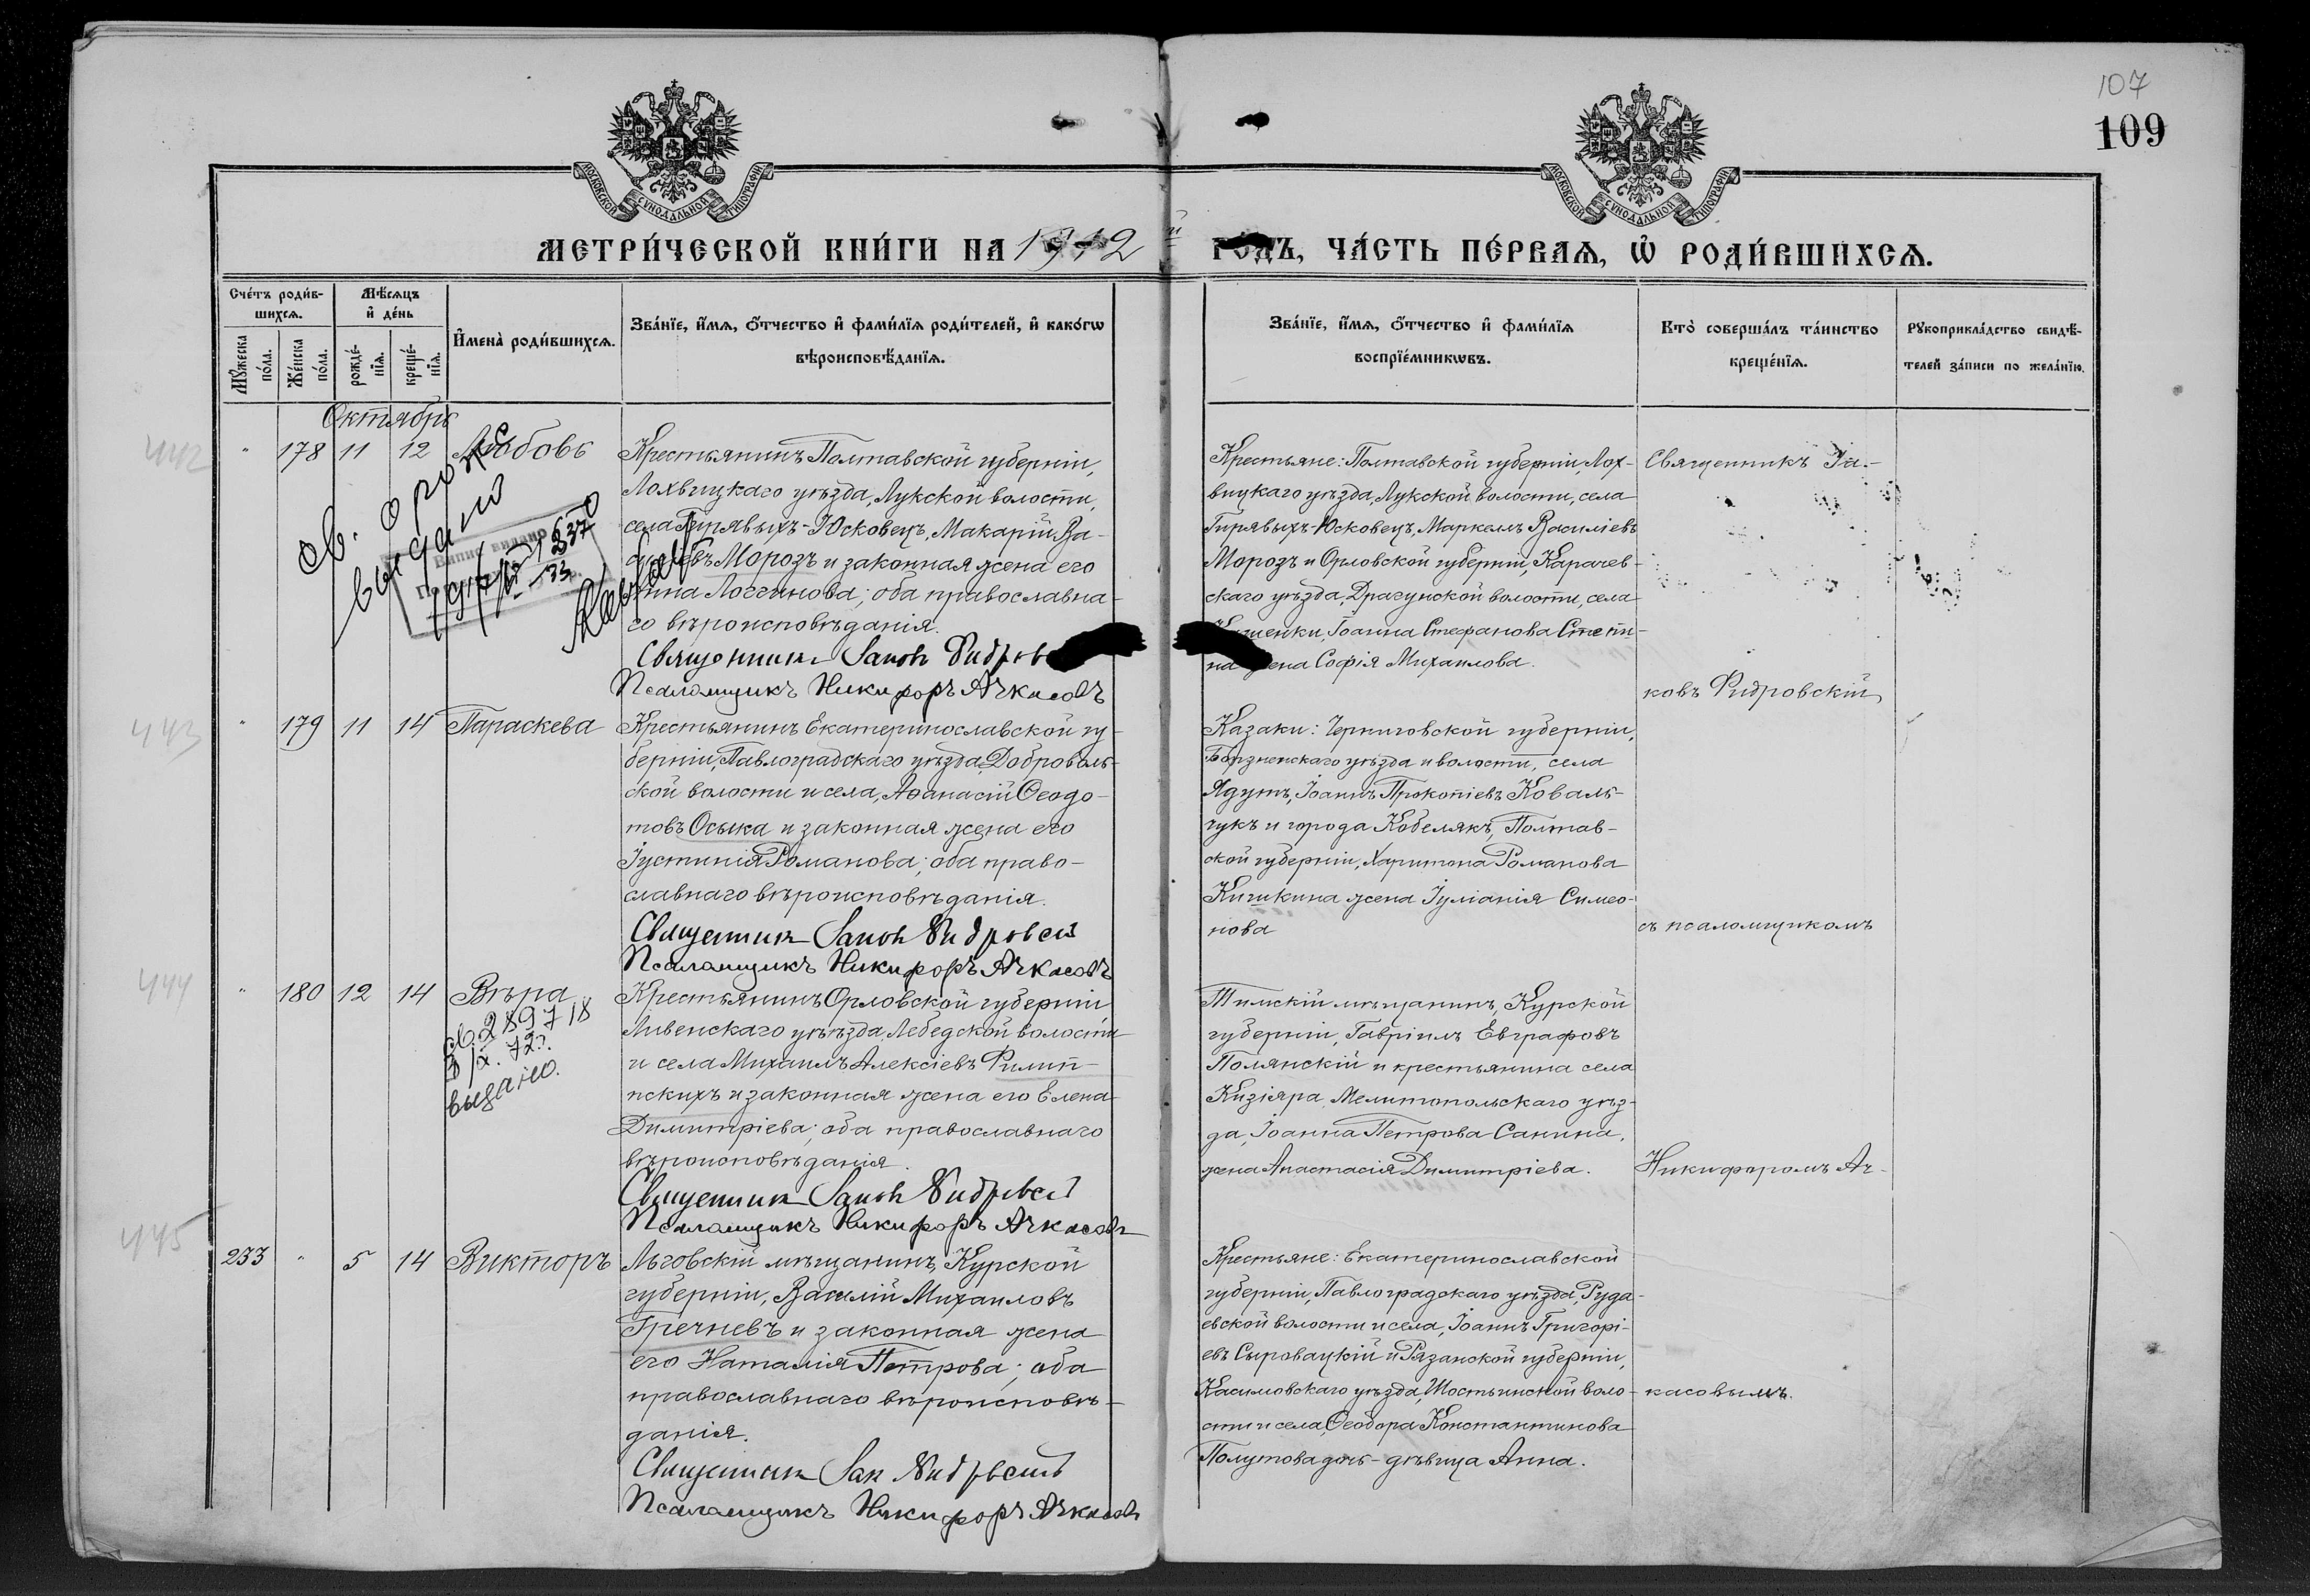 107
109
МОСКОВСКОЙ СѴНОДАЛЬНОЙ ТИПОГРАФІИ
МОСКОВСКОЙ СѴНОДАЛЬНОЙ ТИПОГРАФІИ
МЕТРИ́ЧЕСКОЙ КНИ́ГИ НА 1912 й ГО́ДЪ, ЧА́СТЬ ПЕ́РВАѦ, Ѡ҆ РОДИ́ВШИХСѦ.
Сче́тъ роди́в-
шихсѧ.
Мꙋ́жеска по́ла.
Же́нска по́ла.
Мѣ́сѧцъ
и҆ де́нь
рожде́-
нїѧ.
креще́-
нїѧ.
И҆мена̀ роди́вшихсѧ.
Зва́нїе, и҆́мѧ, ѻ҆́тчество и҆ фами́лїѧ роди́телей, и҆ како́гѡ
вѣроисповѣ́данїѧ.
Зва́нїе, и҆́мѧ, ѻ҆́тчество и҆ фами́лїѧ
воспрїе́мникѡвъ.
Кто̀ соверша́лъ та́инство
креще́нїѧ.
Рꙋкоприкла́дство свидѣ́-
телей за́писи по жела́нїю.
Октябрь
442
" 178 11 12 Любовь
Крестьянинъ Полтавской губерніи,
Лохвицкаго уѣзда, Лукской волости,
села Гирявыхъ-Юсковецъ, Макарій Ва-
сильевъ Морозъ и законная жена его
Анна Логгинова; оба православна-
го вѣроисповѣданія.
Священникъ Іаковъ Фидровс
Псаломщикъ Никифоръ Ачкасовъ
св. о рож
выдано
Випис видано
Крестьяне: Полтавской губерніи, Лох-
вицкаго уѣзда, Лукской волости, села
Гирявыхъ-Юсковецъ, Маркелъ Василіевъ
Морозъ и Орловской губерніи, Карачев-
скаго уѣзда, Драгунской волости, села
Іоанна Стефанова Степи-
на жена Софія Михаилова.
Священникъ Іа-
ковъ Фидровскій
443
" 179 11 14 Параскева
Крестьянинъ Екатеринославской гу-
берніи, Павлоградскаго уѣзда, Доброволь-
ской волости и села, Аѳанасій Ѳеодо-
товъ Осыка и законная жена его
Іустинія Романова; оба право-
славнаго вѣроисповѣданія.
Священникъ Іаковъ Фидровскій
Псаломщикъ Никифоръ Ачкасовъ
Казаки: Черниговской губерніи,
Борзненскаго уѣзда и волости, села
Ядутъ, Іоаннъ Прокопіевъ Коваль-
чукъ и города Кобелякъ, Полтав-
ской губерніи, Харитона Романова
Кишкина жена Іуліанія Симео-
нова
съ псаломщикомъ
444
" 180 12 14 Вѣра
св. 2897 18
3/X. 72г.
выдано.
Крестьянинъ Орловской губерніи
Ливенскаго уѣзда, Лебедской волости
и села Михаилъ Алексіевъ Филип-
пскихъ и законная жена его Елена
Димитріева; оба православнаго
вѣроисповѣданія.
Священникъ Іаковъ Фидровскій
Псаломщикъ Никифоръ Ачкасовъ
Тимскій мѣщанинъ, Курской
губерніи, Гавріилъ Евграфовъ
Полянскій и крестьянина села
Кизіяра, Мелитопольскаго уѣз-
да, Іоанна Петрова Санина,
жена Анастасія Димитріева.
Никифоромъ Ач-
445
233 " 5 14 Викторъ
Льговскій мѣщанинъ, Курской
губерніи, Василій Михаиловъ
Гречневъ и законная жена
его Наталія Петрова; оба
православнаго вѣроисповѣ-
данія.
Священникъ Іак Фидровскій
Псаломщикъ Никифоръ Ачкасовъ
Крестьяне: Екатеринославской
губерніи, Павлоградскаго уѣзда, Руда-
евской волости и села, Іоаннъ Григорі-
евъ Сыровацкій и Рязанской губерніи,
Касимовскаго уѣзда, Шостьинской воло-
сти и села, Ѳеодора Константинова
Полутова дочь-дѣвица Анна.
касовымъ.